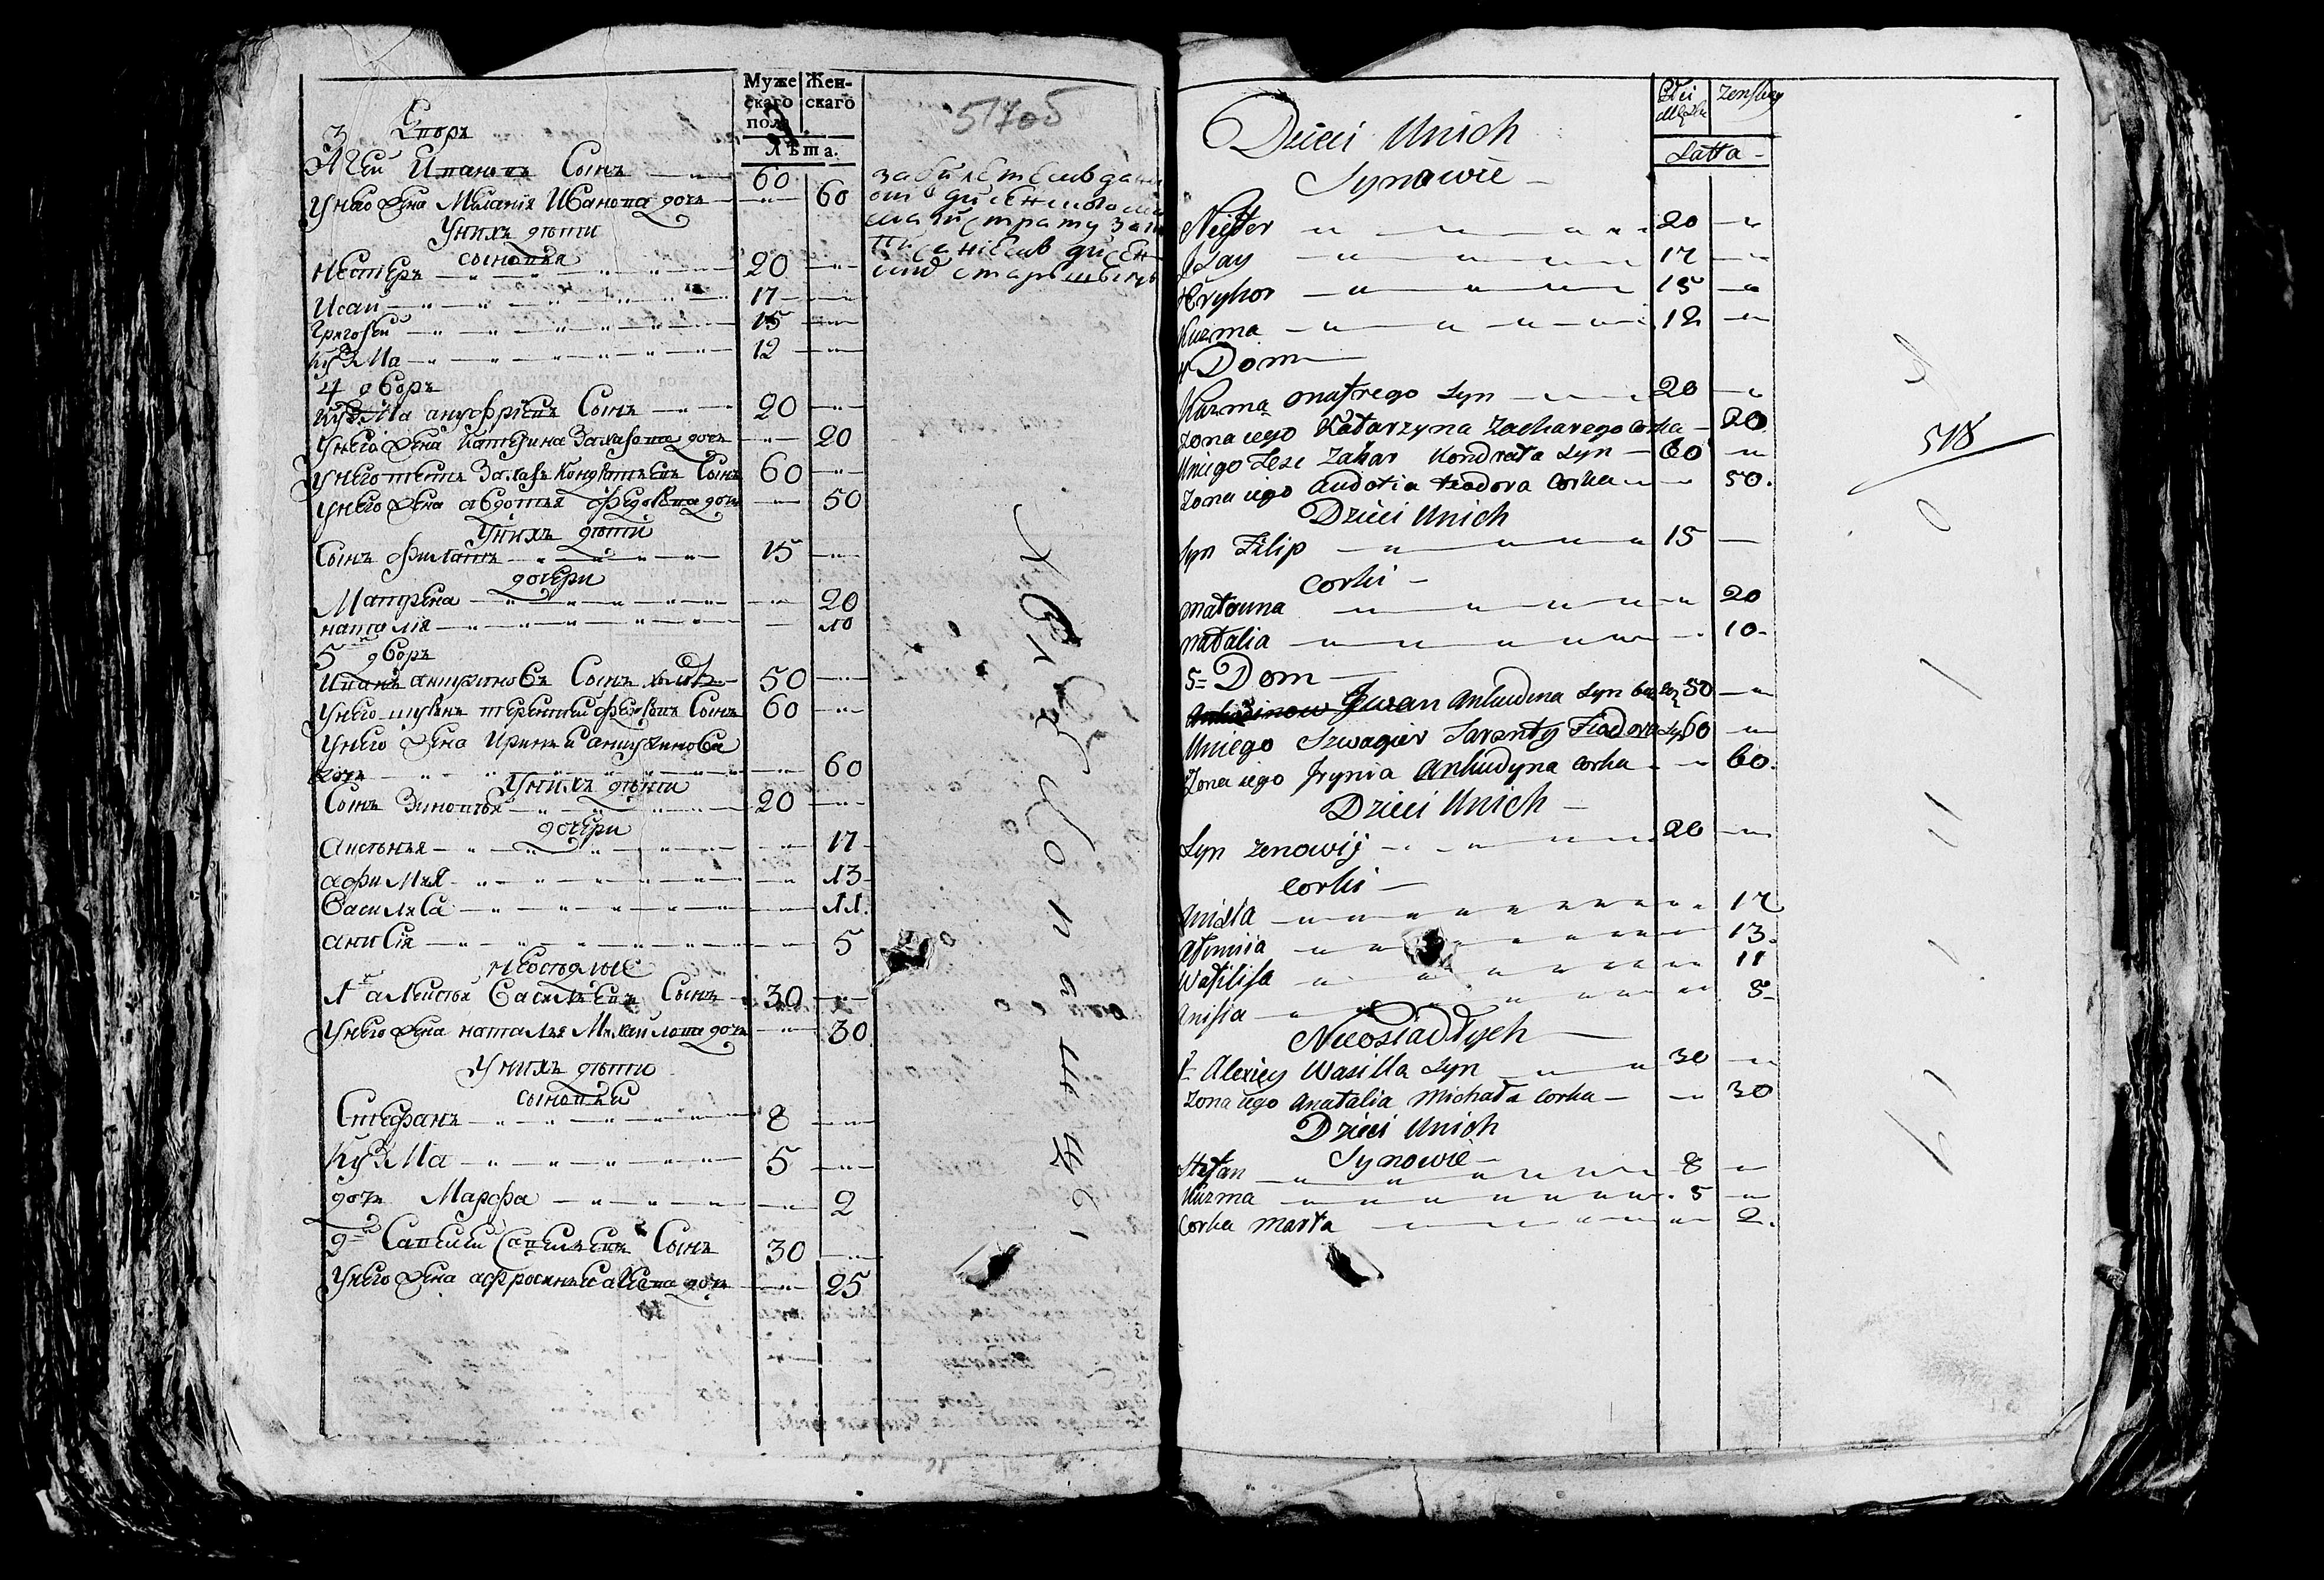 Муже
скаго
пола
Жен-
скаго
Лѣта.
517об
3 дворъ
Ивановъ Сынъ 60
Унево жена Миланія Иванова дочь 60
Унихъ дѣти
сыновья
Нестеръ 20
Исай 17
Григорей 15
Кузма 12
4 дворъ
Кузма ануфріевъ Сынъ 20
Унего жена Катерина Захарова дочь 20
Унего тесть Захаръ Кондратьевъ Сынъ 60
Унего жена авдотья федорова дочь 50
Унихъ дѣти
Сынъ филипъ 15
дочери
Матрена 20
наталія 10
5 дворъ
Иванъ анкудиновъ Сынъ 50
Унего шуринъ терентей федоровъ Сынъ 60
Унего жена Ирина анкудинова
дочь 60
Унихъ дѣти
Сынъ Зиновей 20
дочери
17
афимья 13
Василиса 11
анисія 5
неоседлые
1й алексей Васильевъ Сынъ 30
Унего жена наталья Михайлова дочь 30
Унихъ дѣти
сыновья
Стефанъ 8
Кузма 5
дочь Марфа 2
2й Савелей Савельевъ Сынъ 30
Унего жена афросинья дочь 25
Dzieci Unich
Synowie
Płci
Męzkiey
Zenskiey
Latta
Niester 20
Izay 17
Hryhor 15
Kuzma 12
4 Dom
Kuzma onofrego Syn 20
Zona iego Katarzyna Zacharego Corka 20
Uniego Tesc Zahar Kondrata Syn 60
Zona iego Audotia teodora Corka 50
Dzieci Unich
Syn Filip 15
Corki
Matruna 20
Natalia 10
5 Dom
Iwan Ankudina Syn 50
Uniego Szwagier Tarenty Fiodora Syn 60
Zona iego Irynia Ankudyna Corka 60
Dzieci Unich
Syn Zenowij 20
Corki
17
Afimia 13
Wasilisa 11
Anisia 5
Nieosiadłych
1 Alexiey Wasilla Syn 30
Zona iego Anatalia Michała Corka 30
Dzieci Unich
Synowie
Stefan 8
Kuzma 5
Corka Marta 2
518